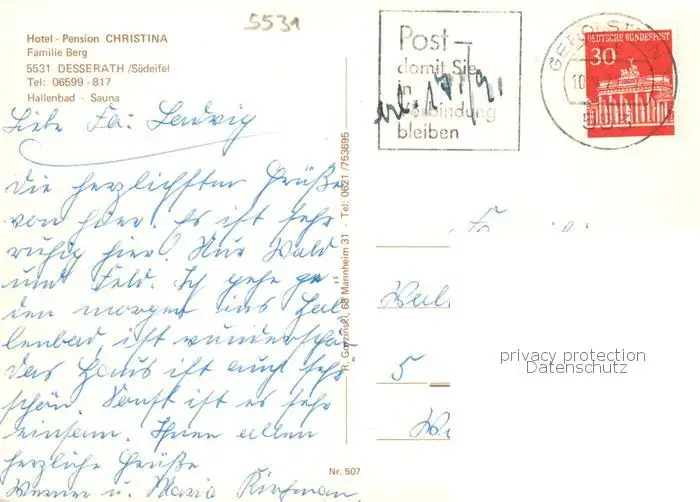 5531
Hotel - Pension CHRISTINA
Familie Berg
5531 DESSERATH /Südeifel
Tel: 06599 - 817
Hallenbad - Sauna
Liebe Fa: Ludwig
Die herzlichsten Grüße
von hier. Es ist sehr
ruhig hier! Nur Wald
und Feld. Ich gehe je-
den morgen ins Hal-
lenbad, ist wunderschön
das Haus ist auch sehr
schön. Sonst ist es sehr
einsam. Ihnen allen
herzliche Grüße
Werner u. Maria
R. Gorzinski, 68 Mannheim 31 - Tel: 0621 /753695
Nr. 507
Post -
damit Sie
in
Verbindung
bleiben
GEROLSTEIN
DEUTSCHE BUNDESPOST
30
5
privacy protection
Datenschutz